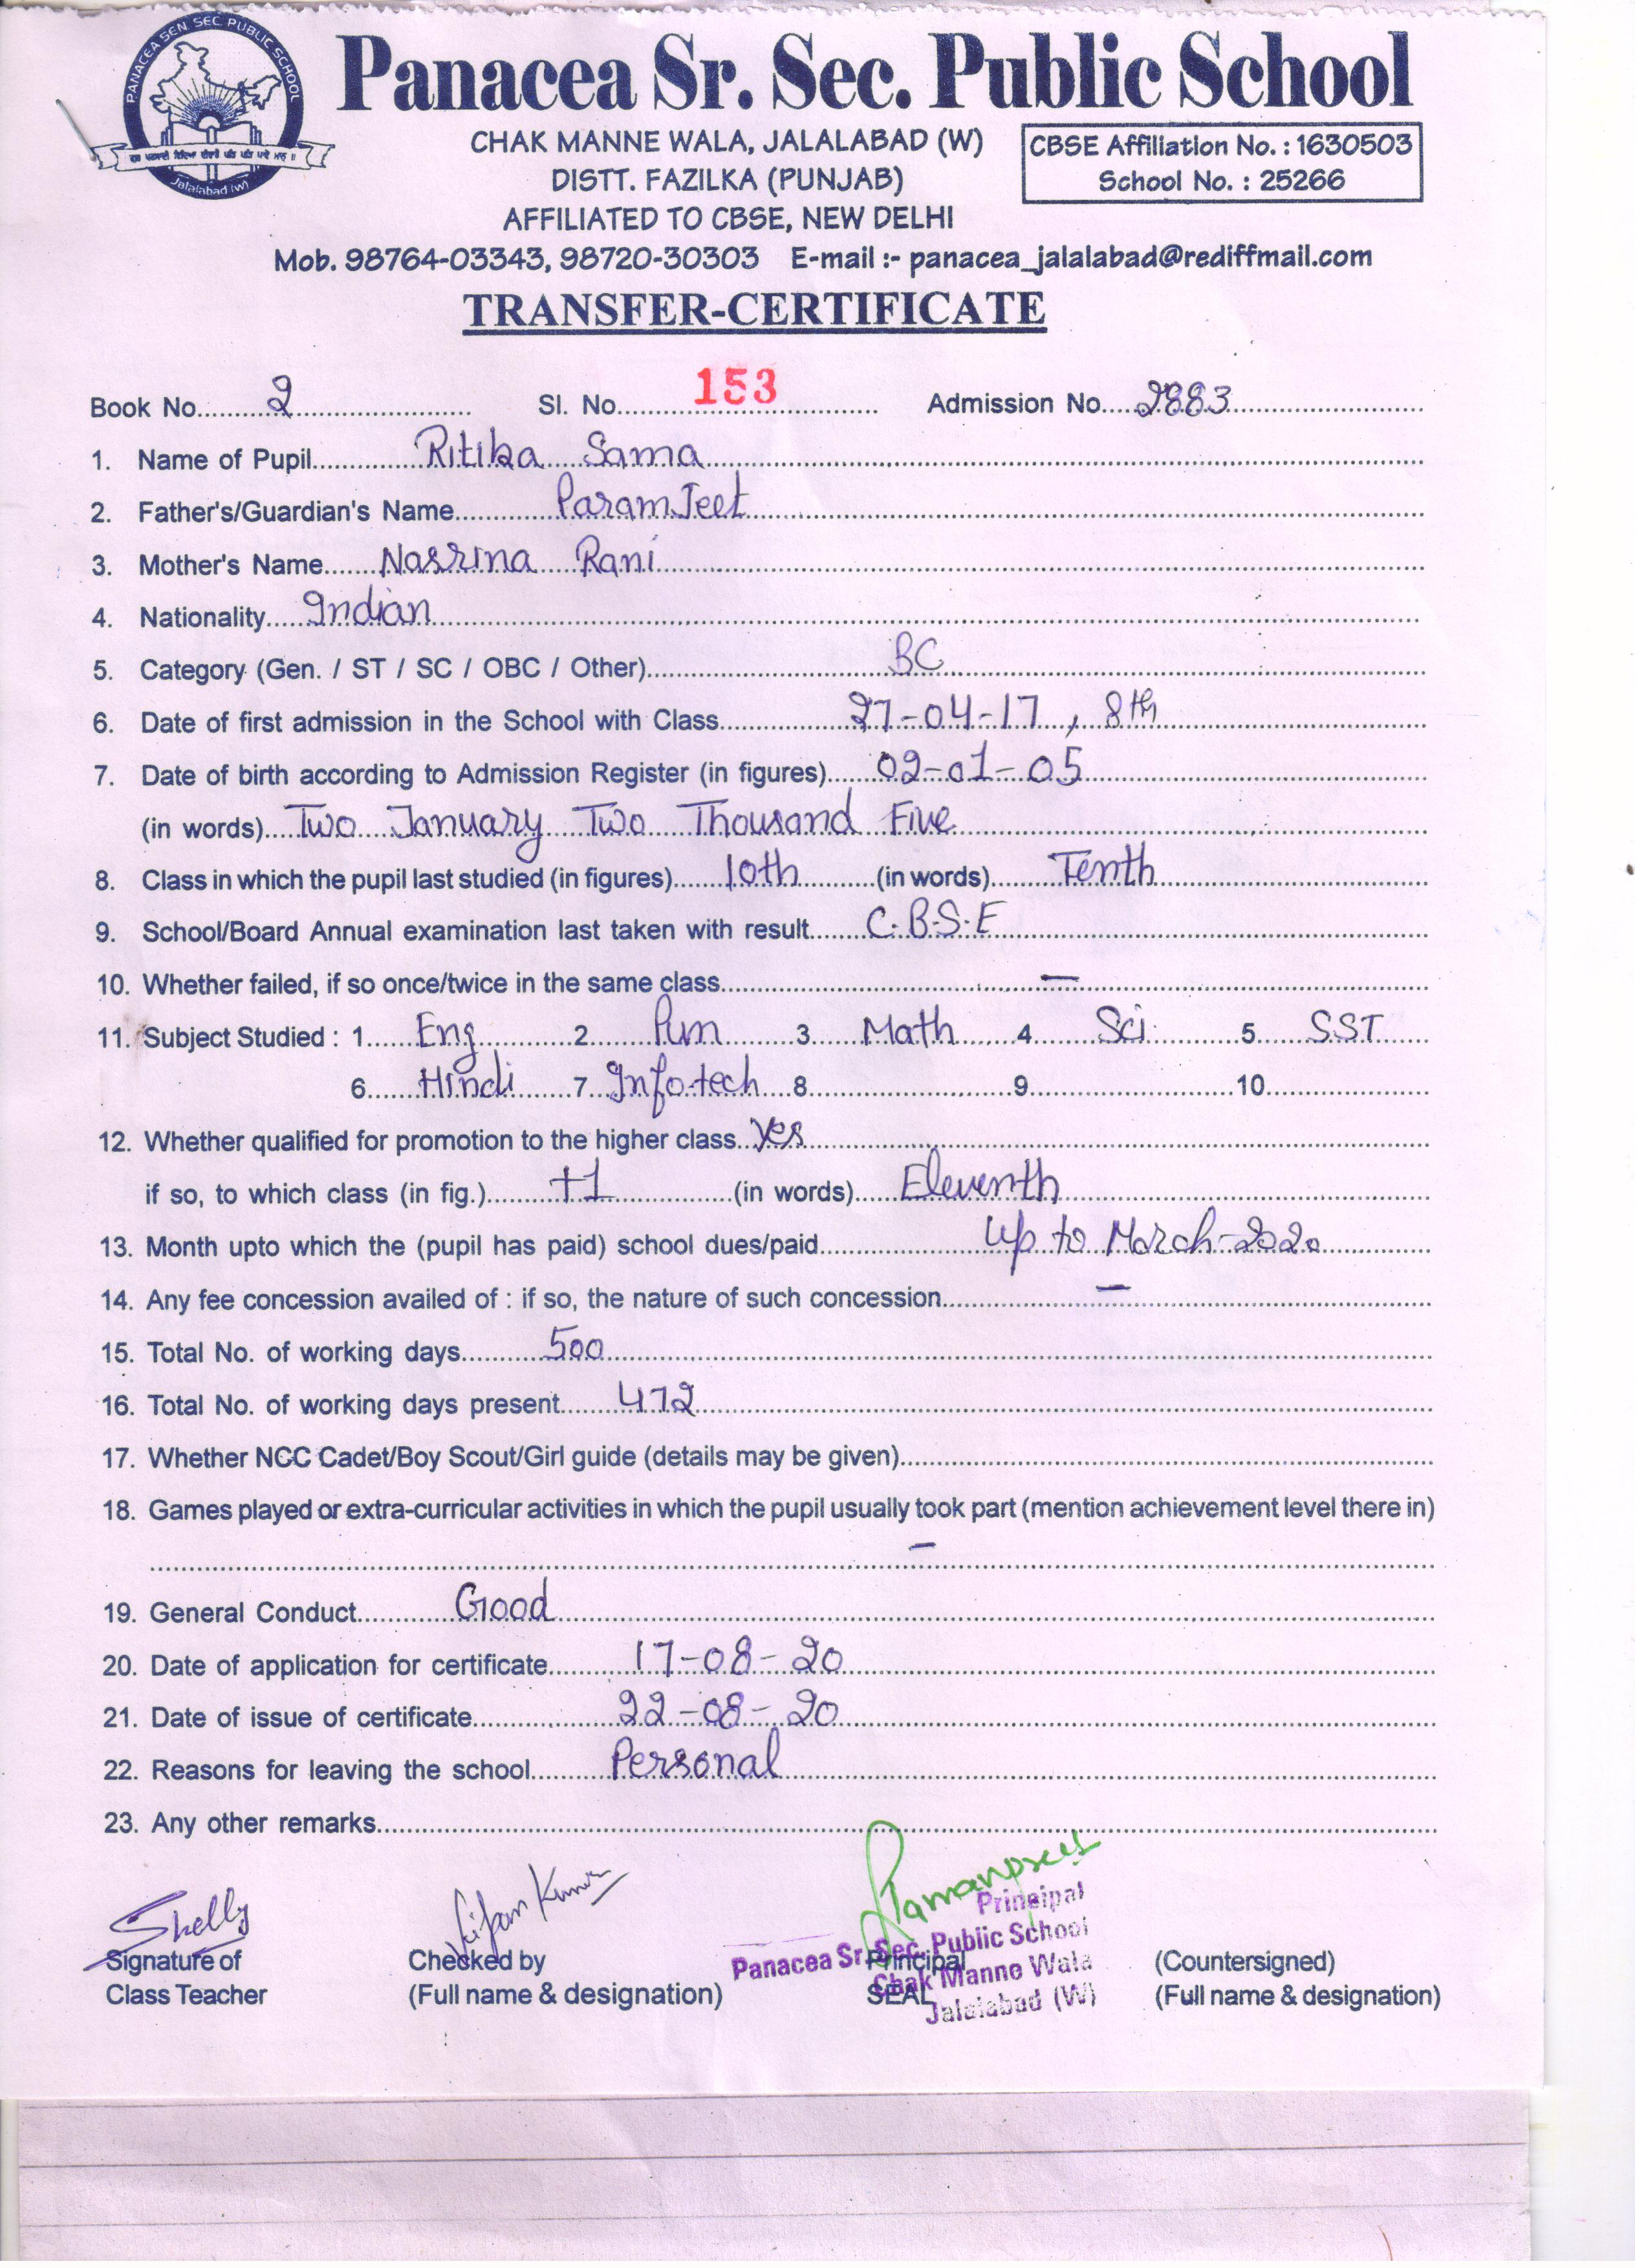 PANACEA SEN SEC PUBLIC SCHOOL
Jalalabad (W)
Panacea Sr. Sec. Public School
CHAK MANNE WALA, JALALABAD (W)
DISTT. FAZILKA (PUNJAB)
AFFILIATED TO CBSE, NEW DELHI
CBSE Affiliation No. : 1630503
School No. : 25266
Mob. 98764-03343, 98720-30303 E-mail :- panacea_jalalabad@rediffmail.com
TRANSFER-CERTIFICATE
Book No. 2 Sl. No. 153 Admission No. 2883
1. Name of Pupil Ritika Sama
2. Father's/Guardian's Name ParamJeet
3. Mother's Name Nasrina Rani
4. Nationality Indian
5. Category (Gen. / ST / SC / OBC / Other) BC
6. Date of first admission in the School with Class 27-04-17, 8th
7. Date of birth according to Admission Register (in figures) 02-01-05
(in words) Two January Two Thousand Five
8. Class in which the pupil last studied (in figures) 10th (in words) Tenth
9. School/Board Annual examination last taken with result C.B.S.E
10. Whether failed, if so once/twice in the same class —
11. Subject Studied : 1 Eng 2 Pun 3 Math 4 Sci 5 SST
6 Hindi 7 Info.tech 8 9 10
12. Whether qualified for promotion to the higher class Yes
if so, to which class (in fig.) +1 (in words) Eleventh
13. Month upto which the (pupil has paid) school dues/paid Up to March-2020
14. Any fee concession availed of : if so, the nature of such concession —
15. Total No. of working days 500
16. Total No. of working days present 472
17. Whether NCC Cadet/Boy Scout/Girl guide (details may be given)
18. Games played or extra-curricular activities in which the pupil usually took part (mention achievement level there in)
—
19. General Conduct Good
20. Date of application for certificate 17-08-20
21. Date of issue of certificate 22-08-20
22. Reasons for leaving the school Personal
23. Any other remarks
Shelly
Kumar
Ramanpreet
Principal
Panacea Sr. Sec. Public School
Chak Manne Wala
Jalalabad (W)
Signature of Checked by Principal (Countersigned)
Class Teacher (Full name & designation) SEAL (Full name & designation)